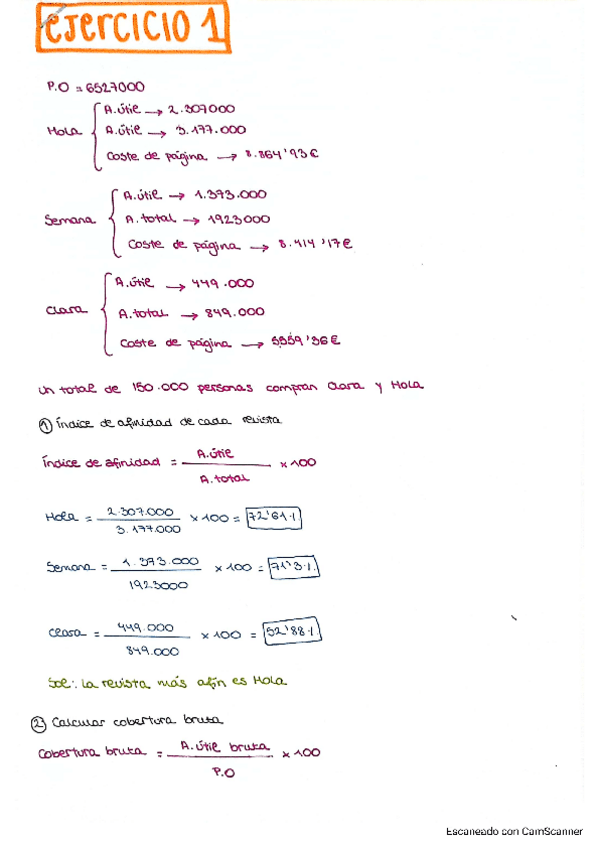 EJERCICIO 1
P.O = 6527000
Hola
A.útil → 2.307000
A.útil → 3.177.000
Coste de página → 8.864'93€
Semana
A.útil → 1.373.000
A.total → 1923000
Coste de página → 8.414'17€
Clara
A.útil → 449.000
A.total → 849.000
Coste de página → 5559'56€
Un total de 150.000 personas compran Clara y Hola
① Índice de afinidad de cada revista
Índice de afinidad = A.útil / A.total × 100
Hola = 2.307.000 / 3.177.000 × 100 = 72'61%
Semana = 1.373.000 / 1923000 × 100 = 71'3%
Clara = 449.000 / 849.000 × 100 = 52'88%
Sol: La revista más afín es Hola
② Calcular cobertura bruta
Cobertura bruta = A.útil bruta / P.O × 100
Escaneado con CamScanner